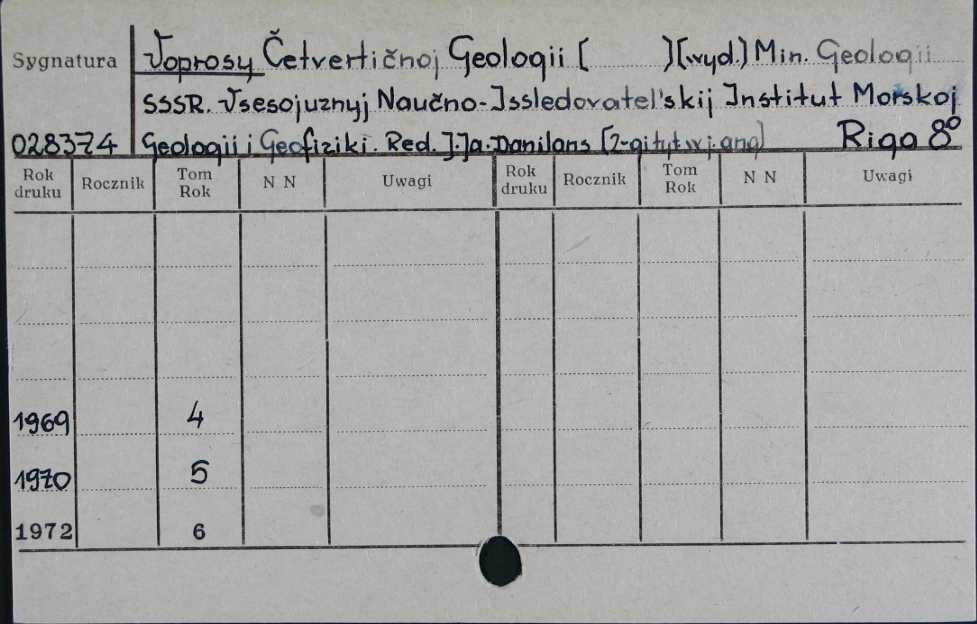 Sygnatura Voprosy Četvertičnoj Geologii [ ] [wyd.] Min. Geologii
SSSR. Vsesojuznyj Naučno-Issledovatel'skij Institut Morskoj
028374 Geologii i Geofiziki. Red. I. Ja. Danilans Riga 8°
Rok druku Rocznik Tom Rok N N Uwagi Rok druku Rocznik Tom Rok N N Uwagi
1969 4
1970 5
1972 6